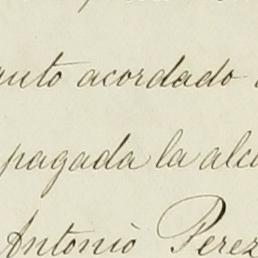 acordado
pagada la
Antonio Perez